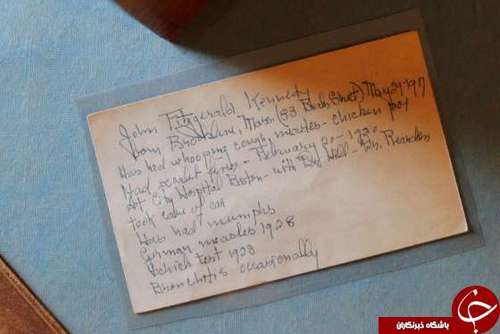 John Fitzgerald Kennedy
Born Brookline, Mass. (83 Beals Street) May 29 1917
Has had whooping cough, measles - chicken pox
Had scarlet fever - February 20 - 1920
At City Hospital Boston - with Dr. Hill - Dr. Reardon
took care of ear
Has had mumps
German measles 1928
Schick test 1928
Bronchitis occasionally
باشگاه خبرنگاران